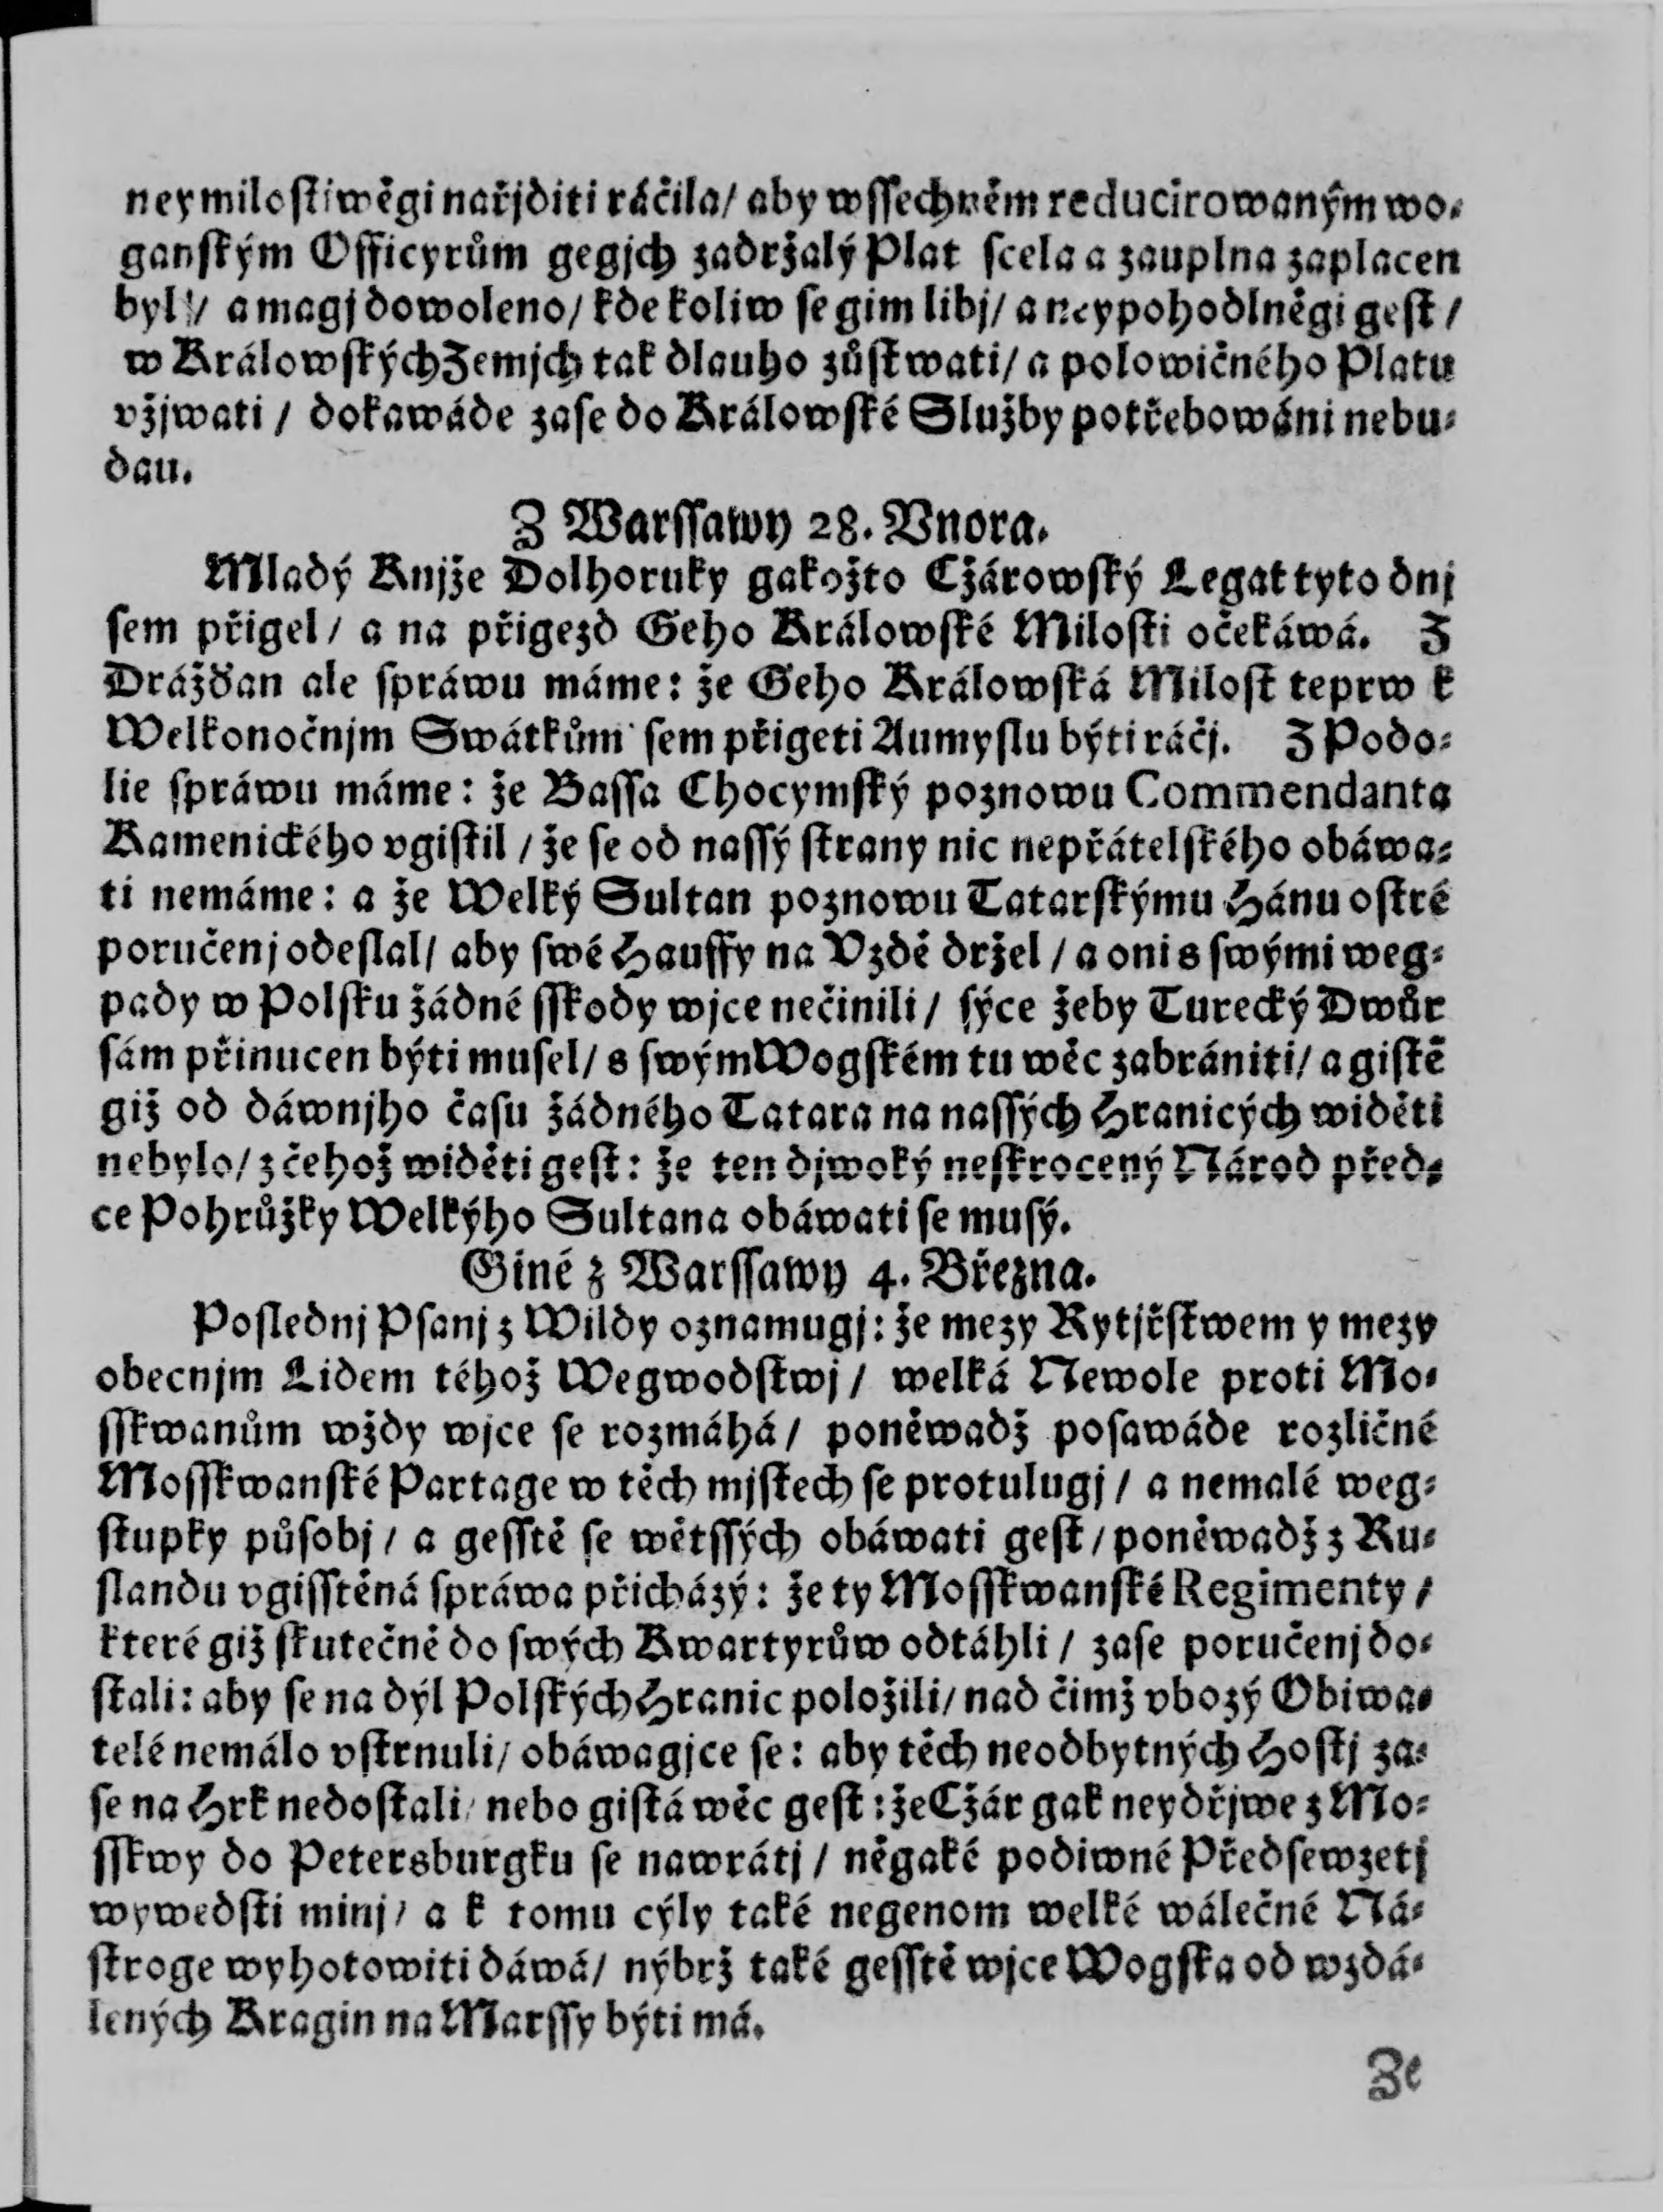 neymilostiwěgi nařjditi ráčila/ aby wſſechněm reducirowaným wo-
ganſkým Officyrům gegjch zadržalý Plat ſcela a zauplna zaplacen
byl/ a magj dowoleno/ kde koliw ſe gim libj/ a neypohodlněgi geſt /
w Králowſkých Zemjch tak dlauho zůſtwati/ a polowičného Platu
vžjwati / dokawáde zaſe do Králowſké Služby potřebowáni nebu-
dau.
Z Warſſawy 28. Vnora.
Mladý Knjže Dolhoruky gakožto Cžárowſký Legat tyto dnj
ſem přigel/ a na přigezd Geho Králowſké Miloſti očekáwá. Z
Drážďan ale ſpráwu máme: že Geho Králowſká Miloſt teprw k
Welkonočnjm Swátkům ſem přigeti Aumyſlu býti ráčj. Z Podo-
lie ſpráwu máme: že Baſſa Chocymſký poznowu Commendanta
Kamenického vgiſtil / že ſe od naſſý ſtrany nic nepřátelſkého obáwa-
ti nemáme: a že Welký Sultan poznowu Tatarſkýmu Hánu oſtré
poručenj odeſlal/ aby ſwé Hauffy na Vzdě držel / a oni s ſwými weg-
pady w Polſku žádné ſſkody wjce nečinili / ſýce žeby Turecký Dwůr
ſám přinucen býti muſel/ s ſwým Wogſkém tu wěc zabrániti/ a giſtě
giž od dáwnjho čaſu žádného Tatara na naſſých Hranicých widěti
nebylo/ z čehož widěti geſt: že ten djwoký neſkrocený Národ před-
ce Pohrůžky Welkýho Sultana obáwati ſe muſý.
Giné z Warſſawy 4. Března.
Poſlednj Pſanj z Wildy oznamugj: že mezy Rytjřſtwem y mezy
obecnjm Lidem téhož Wegwodſtwj / welká Newole proti Mo-
ſſkwanům wždy wjce ſe rozmáhá / poněwadž poſawáde rozličné
Moſſkwanſké Partage w těch mjſtech ſe protulugj / a nemalé weg-
ſtupky půſobj / a geſſtě ſe wětſſých obáwati geſt / poněwadž z Ru-
ſlandu vgiſſtěná ſpráwa přicházý: že ty Moſſkwanſké Regimenty /
které giž ſkutečně do ſwých Kwartyrůw odtáhli / zaſe poručenj do-
ſtali: aby ſe na dýl Polſkých Hranic položili/ nad čimž vbozý Obiwa-
telé nemálo vſtrnuli/ obáwagjce ſe: aby těch neodbytných Hoſtj za-
ſe na Hrk nedoſtali/ nebo giſtá wěc geſt: že Cžár gak neydřjwe z Mo-
ſſkwy do Petersburgku ſe nawrátj / něgaké podiwné Předſewzetj
wyweдſti minj/ a k tomu cýly také negenom welké wálečné Ná-
ſtroge wyhotowiti dáwá/ nýbrž také geſſtě wjce Wogſka od wzdá-
lených Kragin na Marſſy býti má.
Ze